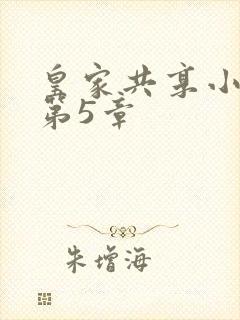 皇家共享小
第5章
朱增海